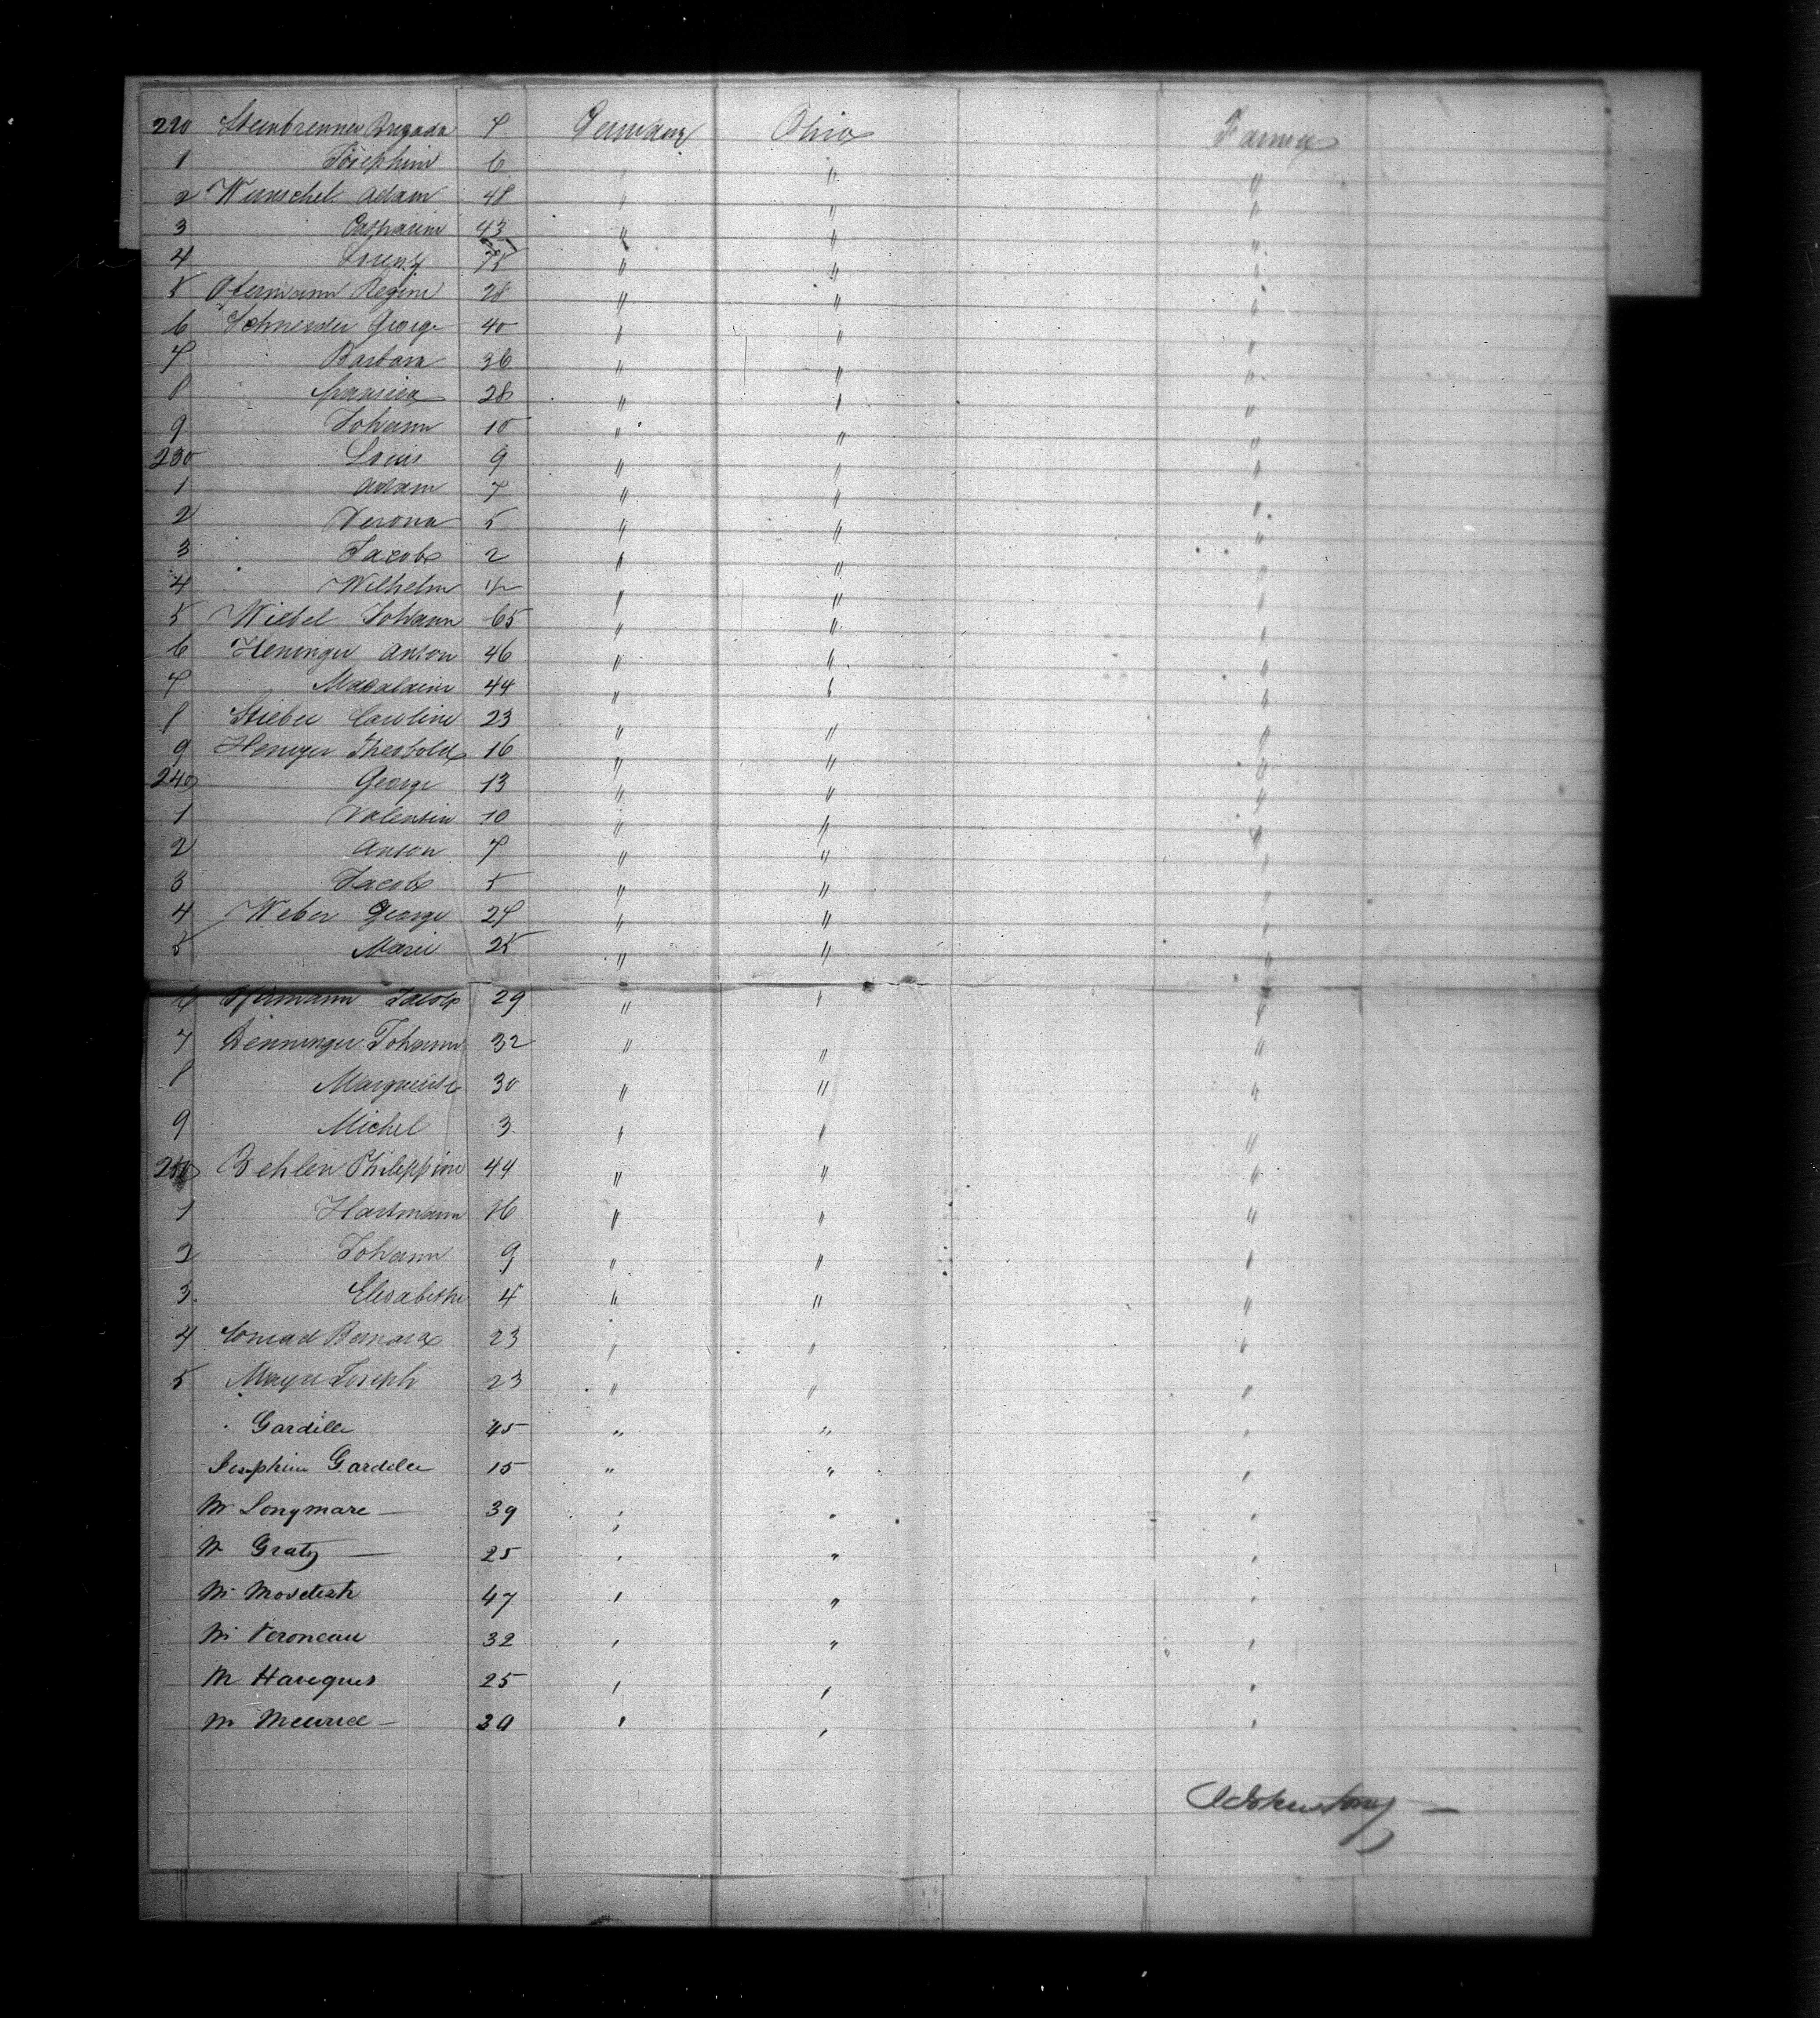 220 Steinbrenner Brigada 7 Germany Ohio Farmer
1 Josephine 6 " " "
2 Wunschel Adam 48 " " "
3 Catharine 43 " " "
4 Lorenz " " "
5 Ofermann Regine 28 " " "
6 Schneider George 40 " " "
7 Barbara 36 " " "
8 28 " " "
9 Johann 10 " " "
230 Louis 9 " " "
1 Adam 7 " " "
2 Verona 5 " " "
3 Jacob 2 " " "
4 Wilhelm 1/2 " " "
5 Wiebel Johann 65 " " "
6 Heninger Anton 46 " " "
7 Magdalein 44 " " "
8 Stieber Caroline 23 " " "
9 Heniger Theobold 16 " " "
240 George 13 " " "
1 Valentin 10 " " "
2 Anton 7 " " "
3 Jacob 5 " " "
4 Weber George 27 " " "
5 Marie 25 " " "
6 Jacob 29 " " "
7 Denninger Johann 32 " " "
8 Marguerite 30 " " "
9 Michel 3 " " "
250 Behlen Philippine 44 " " "
1 Hartmann 16 " " "
2 Johann 9 " " "
3 Elisabethe 4 " " "
4 Conrad Bernard 23 " " "
5 Mayer Joseph 23 " " "
Gardelle 45 " " "
Josephine Gardelle 15 " " "
M Longmare — 39 " " "
M Gratz — 25 " " "
M 47 " " "
M Veroneau 32 " " "
M Havegues 25 " " "
M Meurice — 30 " " "